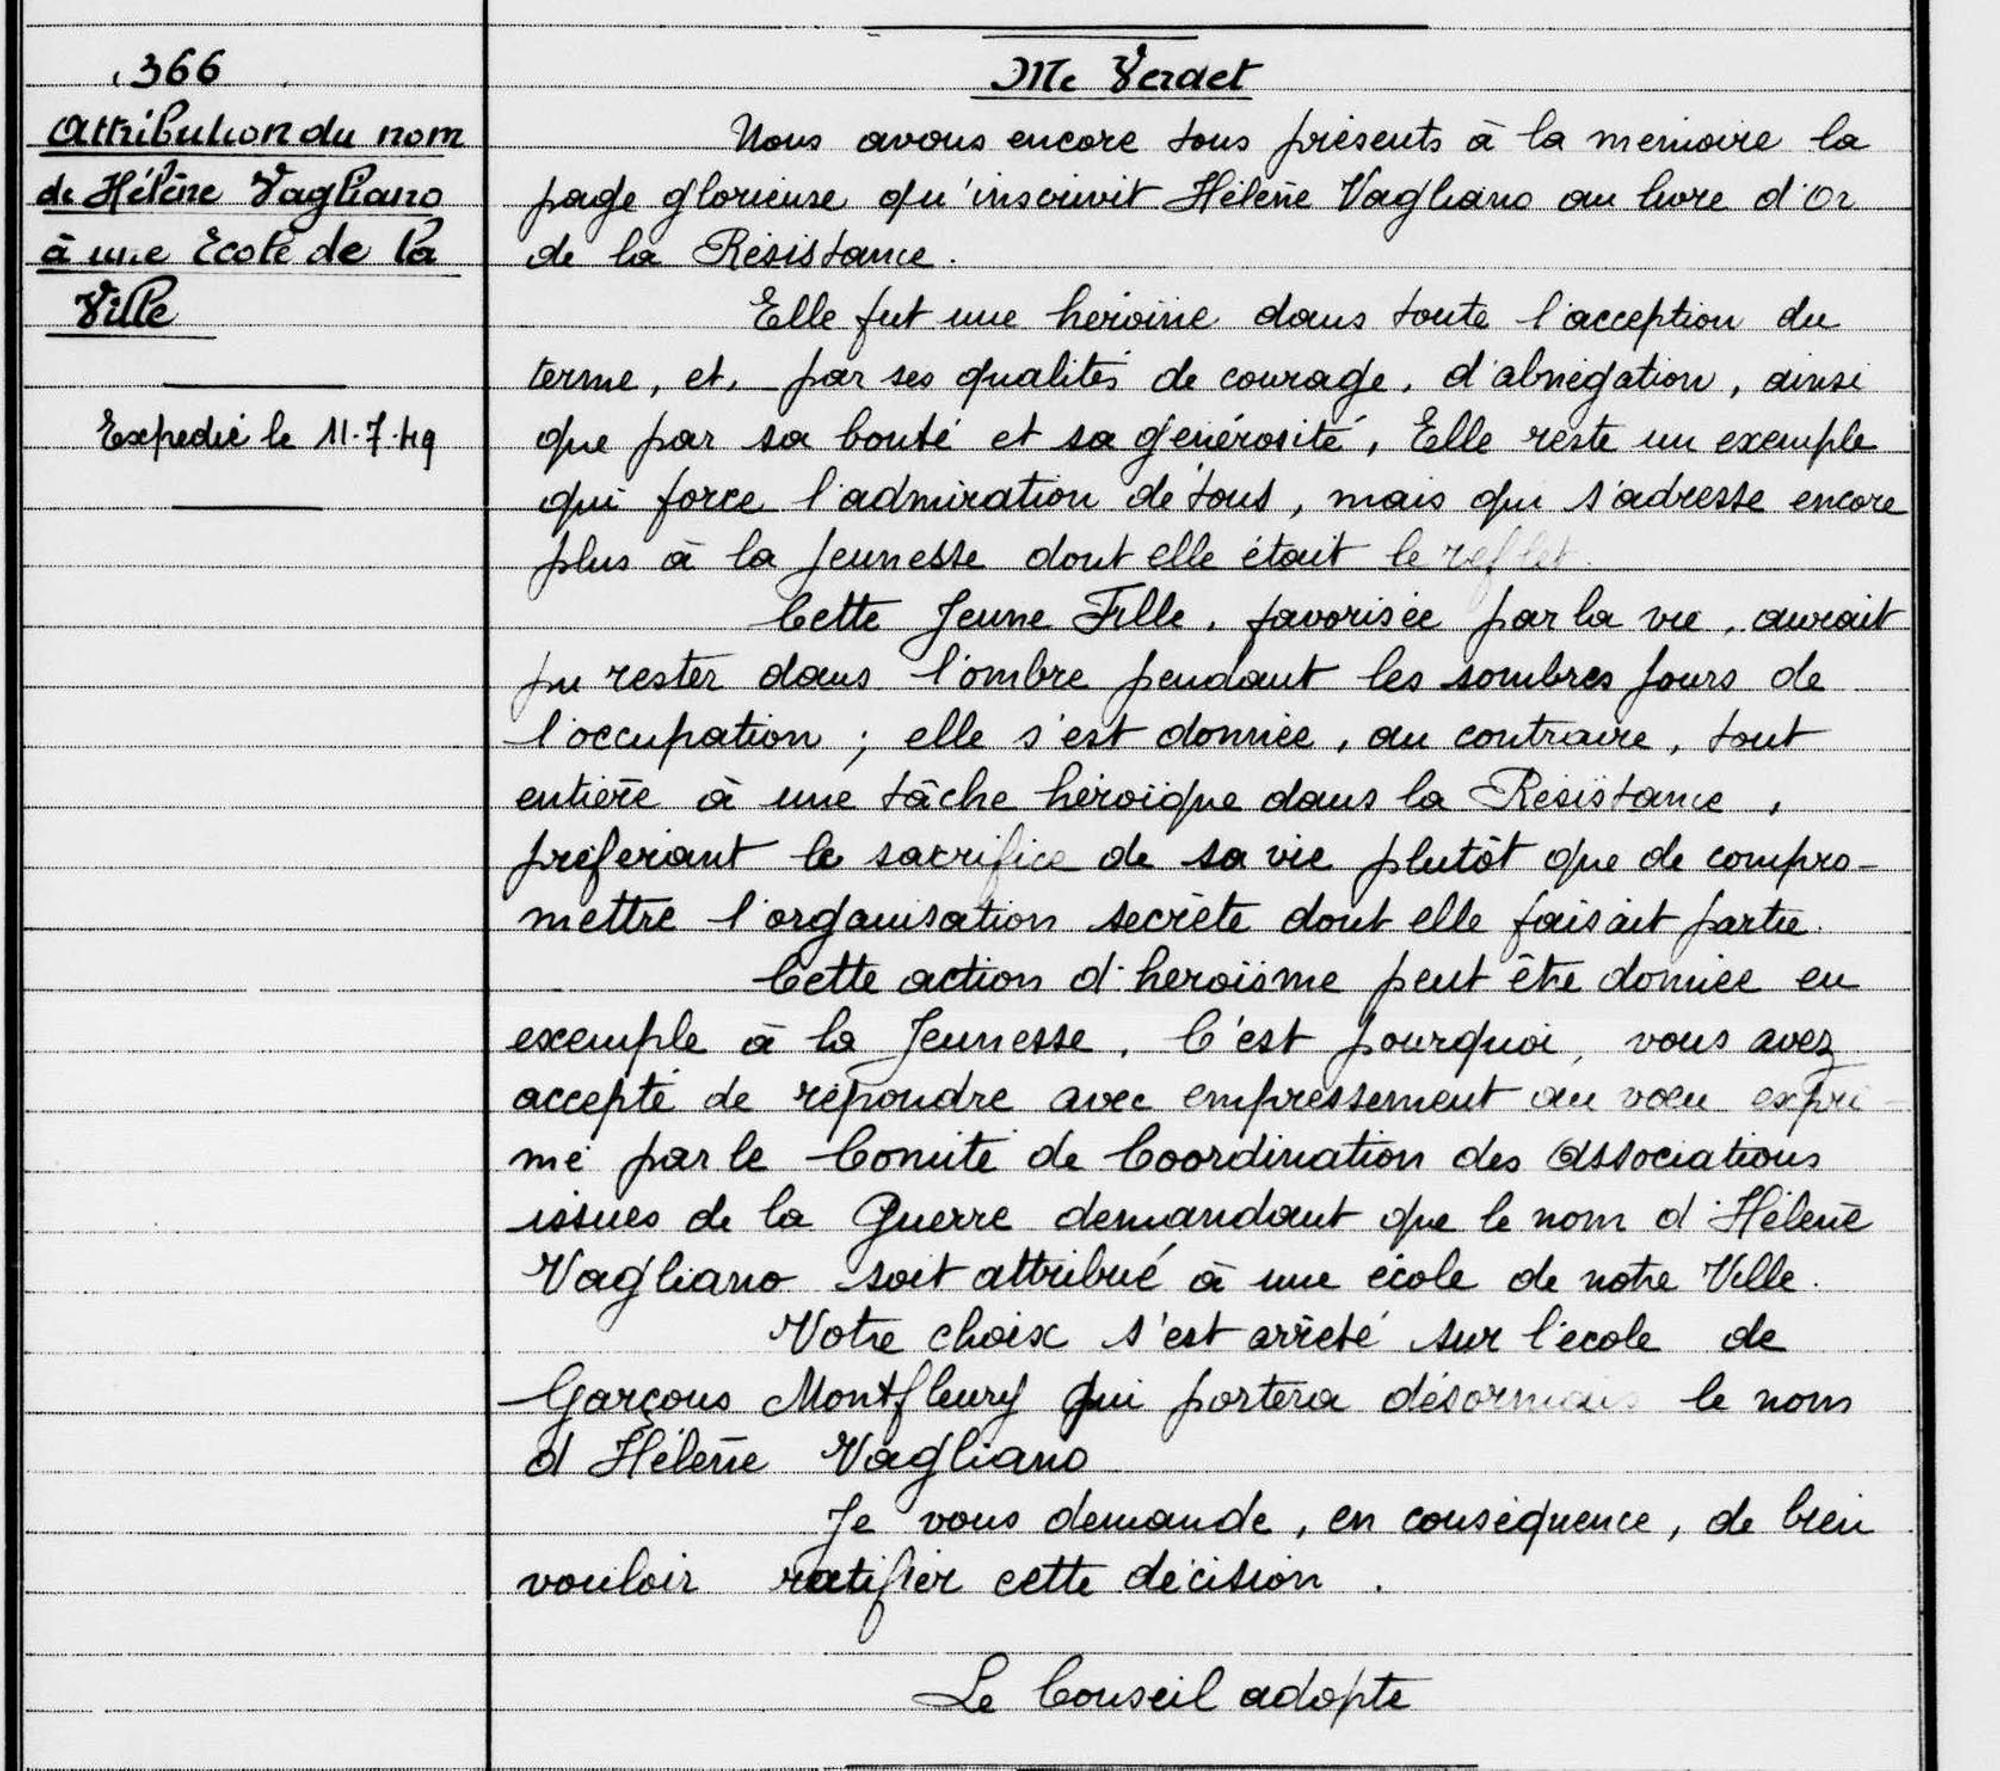 366
Attribution du nom
de Hélène Vagliano
à une Ecole de la
Ville
Expedié le 11.7.49
Me Verdet
Nous avons encore tous présents à la mémoire la
page glorieuse qu'inscrivit Hélène Vagliano au livre d'Or
de la Résistance.
Elle fut une héroïne dans toute l'acception du
terme, et, par ses qualités de courage, d'abnégation, ainsi
que par sa bonté et sa générosité, Elle reste un exemple
qui force l'admiration de tous, mais qui s'adresse encore
plus à la Jeunesse dont elle était le reflet.
Cette Jeune Fille, favorisée par la vie, aurait
pu rester dans l'ombre pendant les sombres jours de
l'occupation ; elle s'est donnée, au contraire, tout
entière à une tâche héroïque dans la Résistance,
préferant le sacrifice de sa vie plutôt que de compro-
mettre l'organisation secrète dont elle faisait partie.
Cette action d'heroïsme peut être donnée en
exemple à la Jeunesse. C'est pourquoi, vous avez
accepté de répondre avec empressement au voeu expri-
mé par le Comité de Coordination des Associations
issues de la Guerre demandant que le nom d'Hélène
Vagliano soit attribué à une école de notre Ville.
Votre choix s'est arrêté sur l'école de
Garçons Montfleury qui portera désormais le nom
d'Hélène Vagliano
Je vous demande, en conséquence, de bien
vouloir ratifier cette décision.
Le Conseil adopte